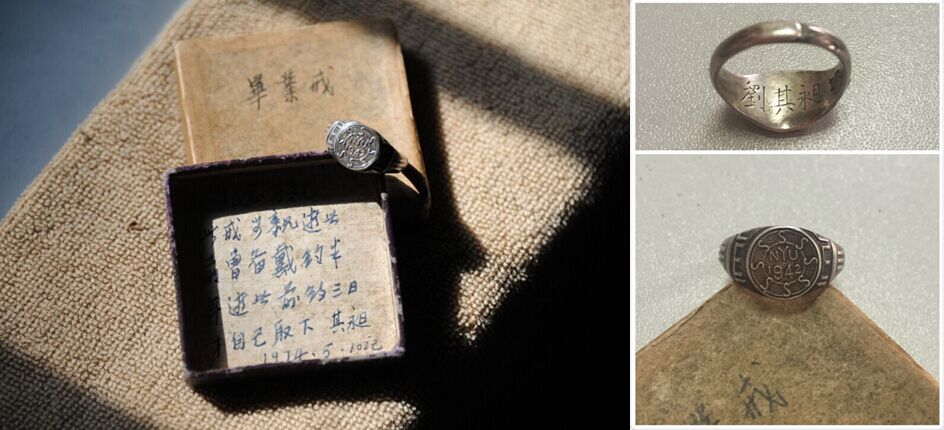 畢業戒
戒 親逝世
曾備戴約半
逝世前約三日
自己取下 其昶
1974.5.10記
劉其昶
NYU
1942
業戒